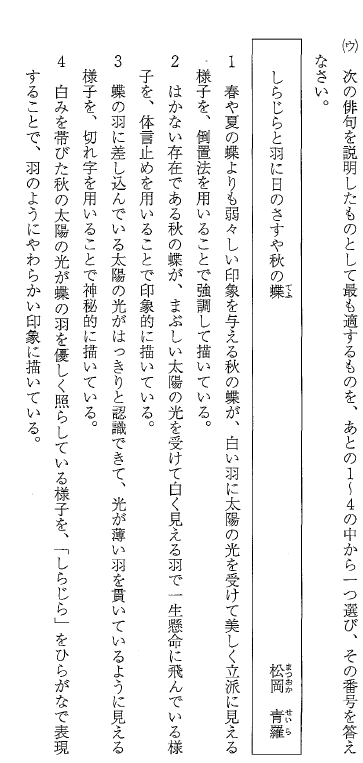 (ウ) 次の俳句を説明したものとして最も適するものを、あとの1~4の中から一つ選び、その番号を答え
なさい。
しらじらと羽に日のさすや秋の蝶 松岡 青羅
てふ
まつおか せいら
1 春や夏の蝶よりも弱々しい印象を与える秋の蝶が、白い羽に太陽の光を受けて美しく立派に見える
様子を、倒置法を用いることで強調して描いている。
2 はかない存在である秋の蝶が、まぶしい太陽の光を受けて白く見える羽で一生懸命に飛んでいる様
子を、体言止めを用いることで印象的に描いている。
3 蝶の羽に差し込んでいる太陽の光がはっきりと認識できて、光が薄い羽を貫いているように見える
様子を、切れ字を用いることで神秘的に描いている。
4 白みを帯びた秋の太陽の光が蝶の羽を優しく照らしている様子を、「しらじら」をひらがなで表現
することで、羽のようにやわらかい印象に描いている。